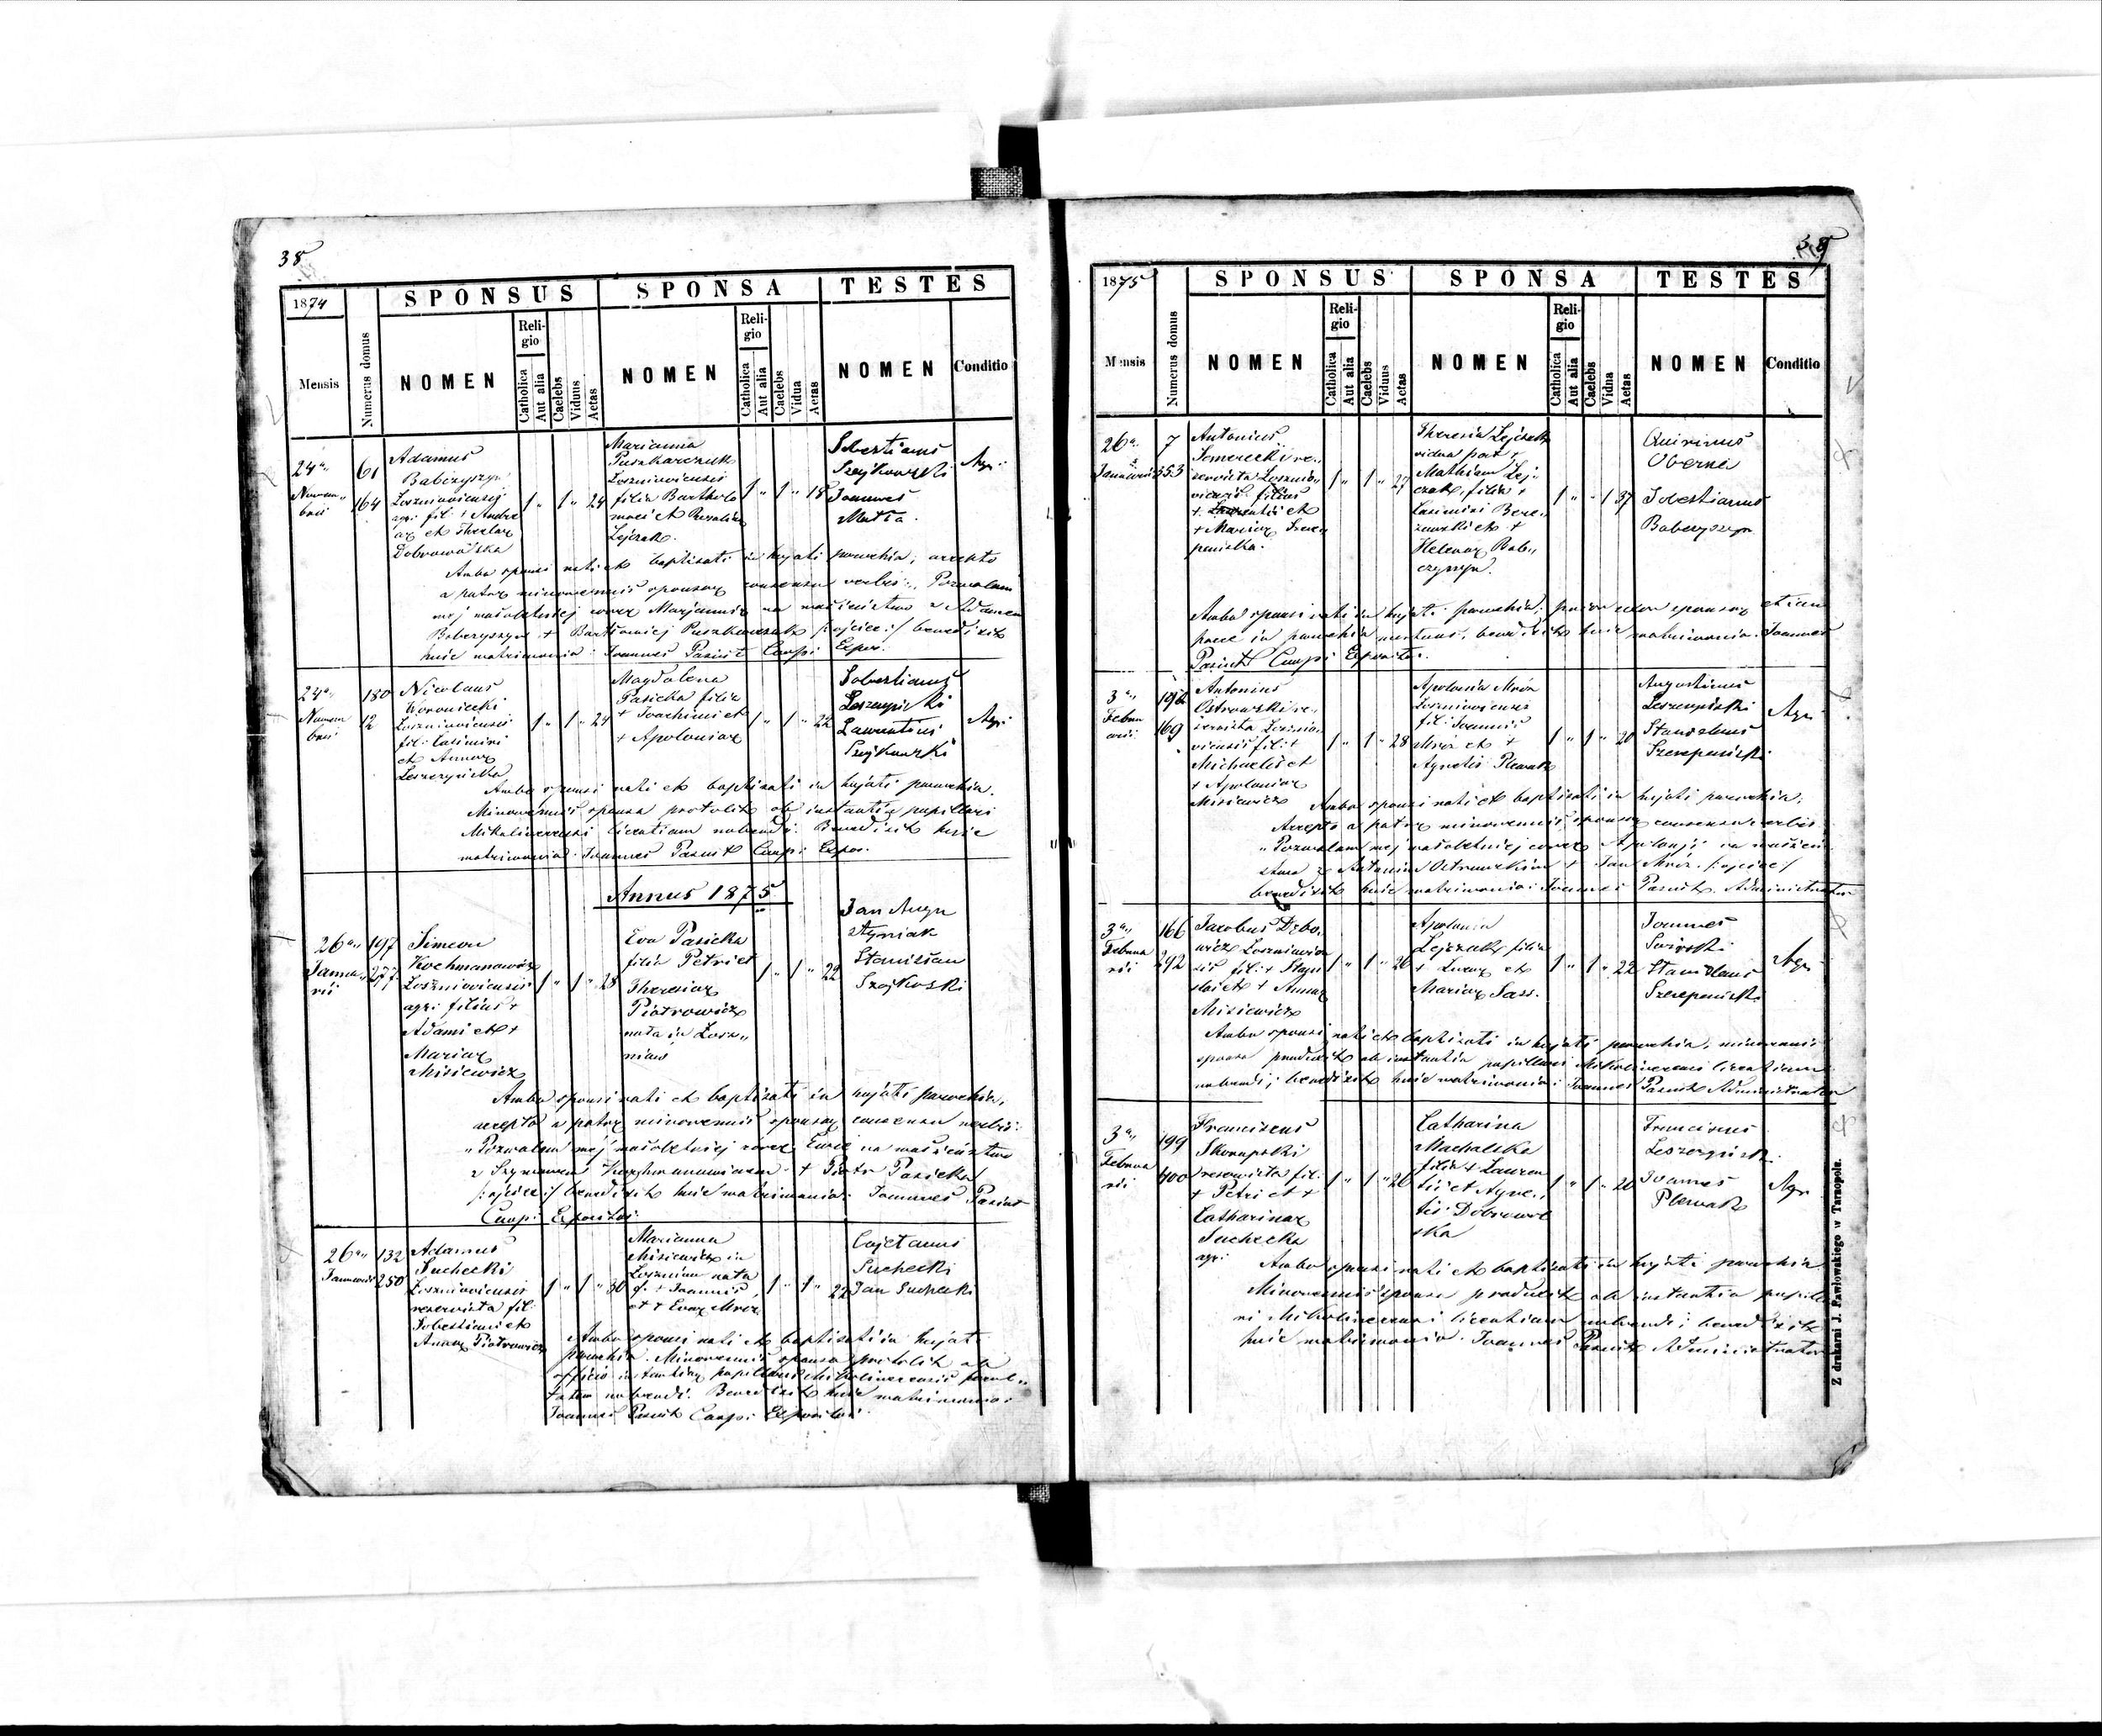 38
1874
SPONSUS
SPONSA
TESTES
Mensis
Numerus domus
NOMEN
Religio
Catholica
Aut alia
Caelebs
Viduus
Aetas
NOMEN
Religio
Catholica
Aut alia
Caelebs
Vidua
Aetas
NOMEN
Conditio
24a
Novem
bris
61
164
Adamus
Babczyszyn
Losznioviensis
agri fil + Andre
ae et Theclae
Dobrowolska
1 " 1 " 24
Marianna
Puszkarczuk
Losznioviensis
filia Bartholo
maei et Rosaliae
Lejczak.
1 " 1 " 18
Sobestianus
Szejkowski
Joannes
Matla.
Agri
Ambo sponsi nati et baptisati in hujati parochia; accepto
a patre minorennis sponsae consensu verbis: Pozwalam
mej małoletniej córce Marjannie na małżeństwo z Adamem
Babczyszyn + Bartłomiej Puszkarczuk /:ojciec:/ benedixit
huic matrimonio: Joannes Pasiut Coop: Expos:
24a
Novem
bris
180
12
Nicolaus
Woroniecki
Losznioviensis
fil: Casimiri
et Annae
Leszczyńska
1 " 1 " 24
Magdalena
Pasicka filia
+ Joachimi et
+ Apoloniae
1 " 1 " 22
Sobestianus
Leszczyński
Laurentius
Szejkowski
Agri
Ambo sponsi nati et baptisati in hujati parochia.
Minorennis sponsa protulit ab instantia pupillari
Mikulincensi licentiam nubendi. Benedixit huic
matrimonio: Joannes Pasiut Coop: Expos:
Annus 1875
26a
Janua
rii
197
277
Simeon
Kochmanowicz
Losznioviensis
agri filius +
Adami et +
Mariae
Misiewicz
1 " 1 " 28
Eva Pasicka
filia Petri et
Theresiae
Piotrowicz
nata in Łosz
niów
1 " 1 " 22
Jan Augu
styniak
Stanisław
Szejkoski
Ambo sponsi nati et baptisati in hujati parochia,
accepto a patre minorennis sponsae consensu verbis:
"Pozwalam mej małoletniej córce Ewie na małżeństwo
z Szymonem Kochmanowiczem + Piotr Pasicka
/:ojciec:/ benedixit huic matrimonio: Joannes Pasiut
Coop: Expositus
26a
Januarii
132
250
Adamus
Suchecki
Losznioviensis
reservista fil:
Sobestiani et
Annae Piotrowicz
1 " 1 " 30
Marianna
Misiewicz in
Łoszniów nata
f. + Joannis
et + Evae Mróz
1 " 1 " 22
Cajetanus
Suchecki
Jan Suchecki
Ambo sponsi nati et baptisati in hujati
parochia. Minorennis sponsa protulit ab
officio instantiae pupillaris Mikulincensis facul
tatem nubendi. Benedixit huic matrimonio:
Joannes Pasiut Coop: Expositus.
1875
SPONSUS
SPONSA
TESTES
Mensis
Numerus domus
NOMEN
Religio
Catholica
Aut alia
Caelebs
Viduus
Aetas
NOMEN
Religio
Catholica
Aut alia
Caelebs
Vidua
Aetas
NOMEN
Conditio
26a
Januarii
7
353
Antonius
Semerecki re
servista Losznio
viensis filius
et
+ Mariae Szcze
pańska.
1 " 1 " 27
Theresia Lejczak
vidua post +
Mathiam Lej
czak, filia +
Casimiri Bere
zowski et +
Helenae Bab
czyszyn.
1 " " 1 37
Quirinus
Oberna
Sobestianus
Babczyszyn
Ambo sponsi nati in hujati parochia; prior uxor sponsae etiam
hacce in parochia mortuus, benedixit huic matrimonio: Joannes
Pasiut Coop: Expositus.
3a
Febru
arii
192
169
Antonius
Ostrowski re
servista Losznio
viensis fil: +
Michaelis et
+ Apoloniae
Misiewicz
1 " 1 " 28
Apolonia Mróz
Losznioviensis
fil: Joannis
Mróz et +
Agnetis Plewak
1 " 1 " 20
Augustinus
Leszczyński
Stanislaus
Szczepański
Agri
Ambo sponsi nati et baptisati in hujati parochia;
Accepto a patre minorennis sponsae consensu verbis
"Pozwalam mej małoletniej córce Apolonji na małżeń
stwo z Antonim Ostrowskim + Jan Mróz /:ojciec:/
benedixit huic matrimonio: Joannes Pasiut Administrator
3a
Februa
rii
166
292
Jacobus Dębo
wicz Loszniovien
sis fil: + Stani
slai et + Annae
Misiewicz
1 " 1 " 26
Apolonia
Lejczak filia
+ Lucae et
Mariae Sass.
1 " 1 " 22
Joannes
Świrski
Stanislaus
Szczepański
Agri
Ambo sponsi nati et baptisati in hujati parochia, minorennis
sponsa produxit ab instantia pupillari Mikulincensi licentiam
nubendi; benedixit huic matrimonio: Joannes Pasiut Administrator
3a
Februa
rii
199
400
Franciscus
Skorupski
reservista fil:
+ Petri et +
Catharinae
Suchecka
agri
1 " 1 " 26
Catharina
Machalska
filia + Lauren
tii et Agne
tis Dobrowol
ska
1 " 1 " 20
Franciscus
Leszczyński
Joannes
Plewak
Agri
Ambo sponsi nati et baptisati in hujati parochia
Minorennis sponsa produxit ab instantia pupilla
ri Mikulincensi licentiam nubendi; benedixit
huic matrimonio: Joannes Pasiut Administrator
Z drukarni J. Pawłowskiego w Tarnopolu.